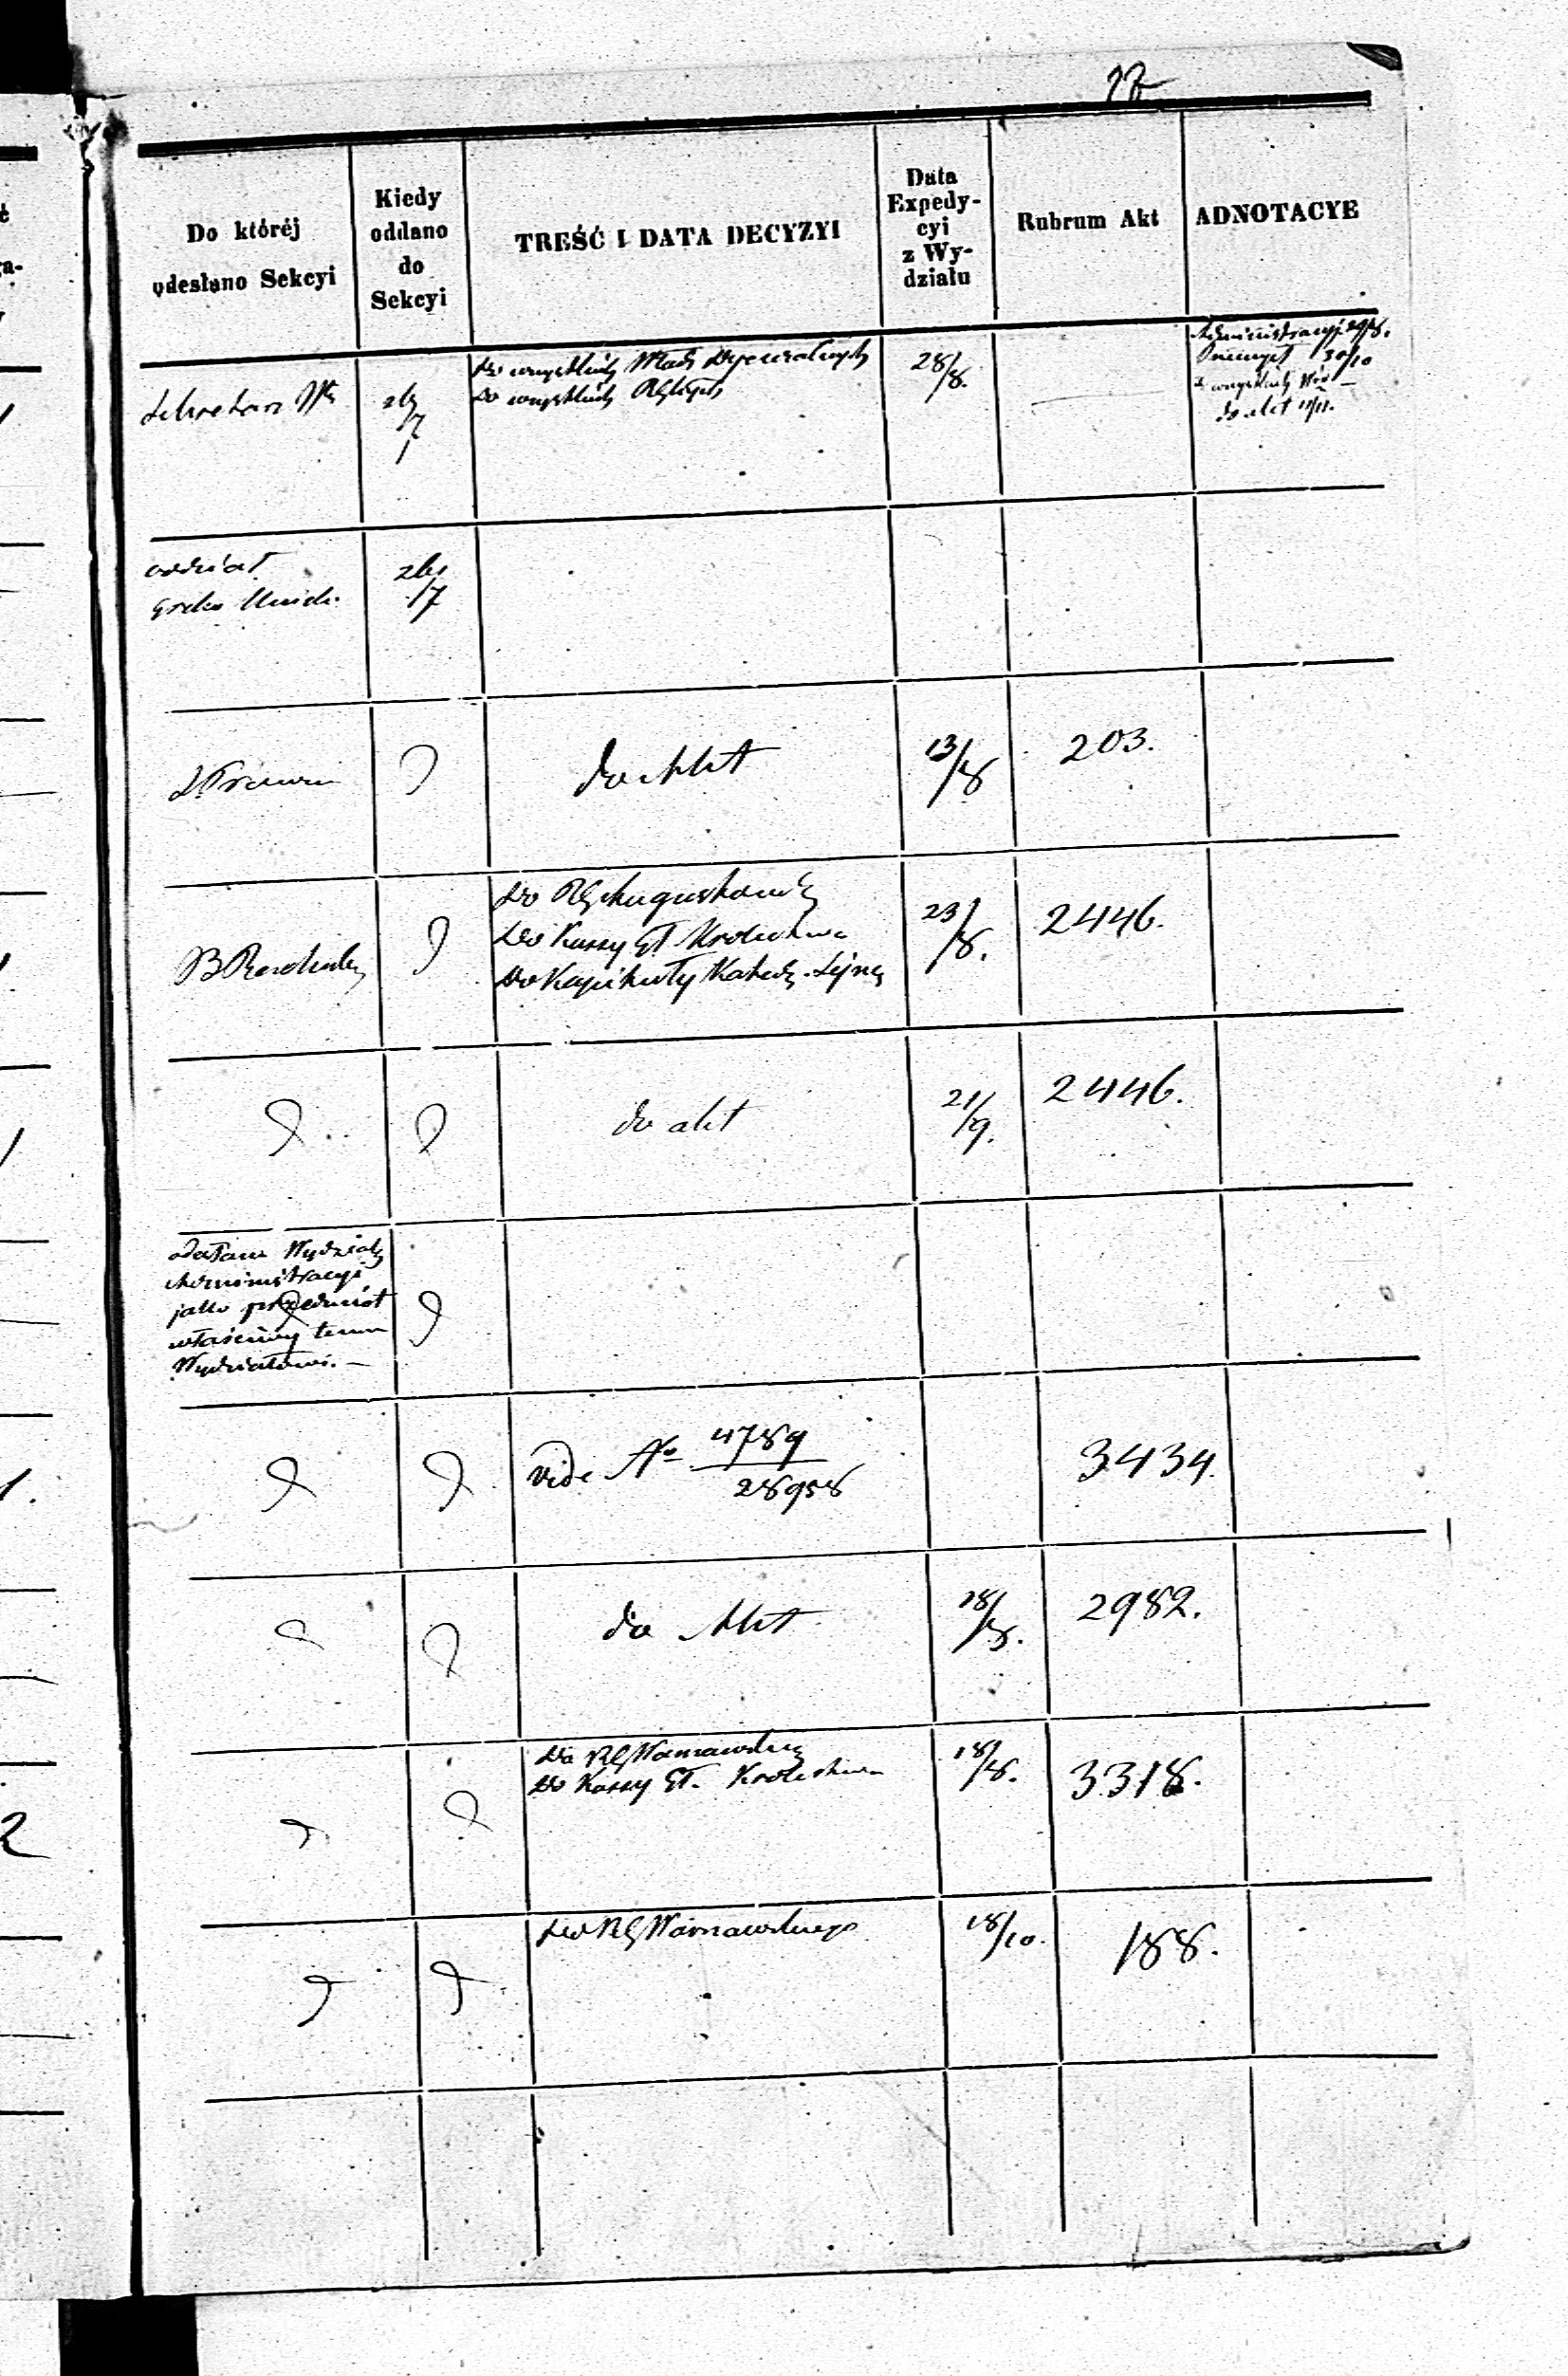 Do któréj
odesłano Sekcyi
Kiedy
oddano
do
Sekcyi
TREŚĆ I DATA DECYZYI
Data
Expedy-
cyi
z Wy-
działu
Rubrum Akt
ADNOTACYE
Sekretarz
Do wszystkich Władz Dyecezalnych
Do wszystkich
28/8.
Administracyi 29/8.
30/10
z wszystkich
do akt 11/11.
oddział
Greko Unick.
26/7
do Akt
13/8
203.
Do RG Augustowsk
Do Kassy Gł. Krolestwa
Do Kapituły Kated. Sejne
23/8.
2446.
do akt
21/9.
2446.
odesłano Wydziału
Administracyi
jako przedmiot
właściwy temu
Wydziałowi. —
vide No 4789
28958
3434.
do Akt
18/8.
2982.
Do RG Warszawskieg
Do Kassy Gł. Krolestwa
18/8.
3318.
Do RG Warszawskiego
18/10.
188.